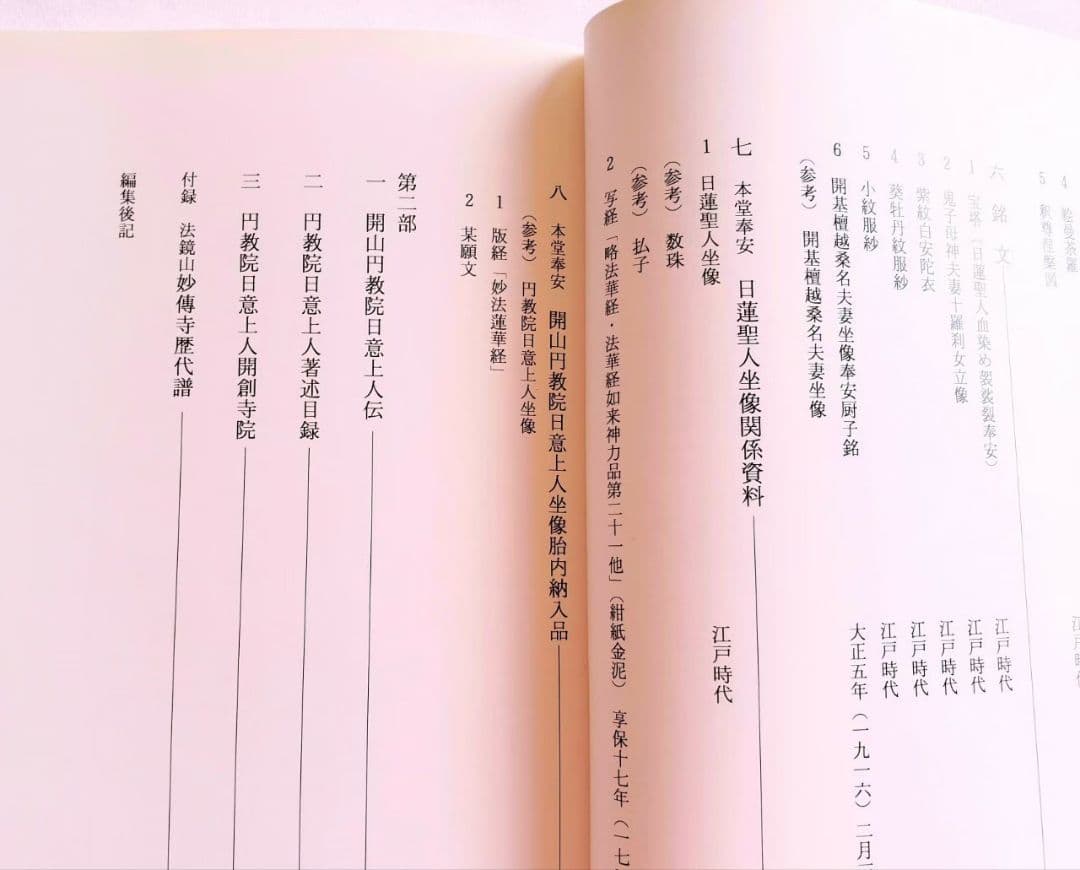 4 絵曼荼羅
5 釈尊涅槃図
江戸時代
六 銘文
1 宝塔(日蓮聖人血染め袈裟裂奉安) 江戸時代
2 鬼子母神夫妻十羅刹女立像 江戸時代
3 紫紋白安陀衣 江戸時代
4 葵牡丹紋服紗 江戸時代
5 小紋服紗 江戸時代
6 開基檀越桑名夫妻坐像奉安厨子銘 大正五年(一九一六)二月
(参考) 開基檀越桑名夫妻坐像
七 本堂奉安 日蓮聖人坐像関係資料
1 日蓮聖人坐像 江戸時代
(参考) 数珠
(参考) 払子
2 写経「略法華経・法華経如来神力品第二十一他」(紺紙金泥) 享保十七年(一七
八 本堂奉安 開山円教院日意上人坐像胎内納入品
(参考) 円教院日意上人坐像
1 版経「妙法蓮華経」
2 某願文
第二部
一 開山円教院日意上人伝
二 円教院日意上人著述目録
三 円教院日意上人開創寺院
付録 法鏡山妙傳寺歴代譜
編集後記